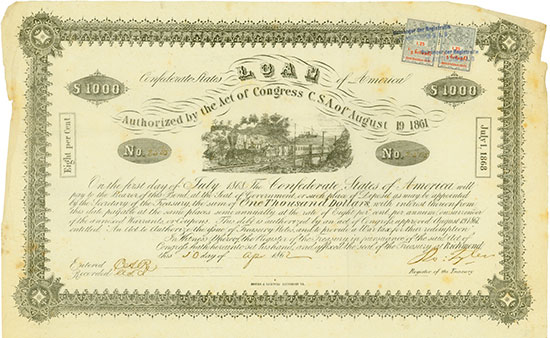 LOAN
Confederate States of America
$1000 $1000
Authorized by the Act of Congress C.S.A. of August 19 1861
No. No.
Eight per Cent
July 1, 1868
On the first day of July 1868 The Confederate States of America will
pay to the Bearer of this Bond, at the Seat of Government, or at such place of Deposit as may be appointed
by the Secretary of the Treasury, the sum of One Thousand Dollars with interest thereon from
this date payable at the same place semi annually at the rate of Eight per Cent per annum, on surrender
of the annexed Warrants or Coupons. This debt is authorized by an act of Congress approved August 19, 1861
entitled An Act to authorize the issue of Treasury Notes, and to provide a War tax for their redemption
In Witness Whereof the Register of the Treasury in pursuance of the said Act of
Congress hath hereunto set his hand, and affixed the seal of the Treasury at Richmond
this day of 1862
Entered
Recorded
Register of the Treasury